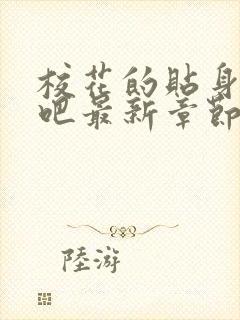 校花的貼身
吧最新章節
陸游